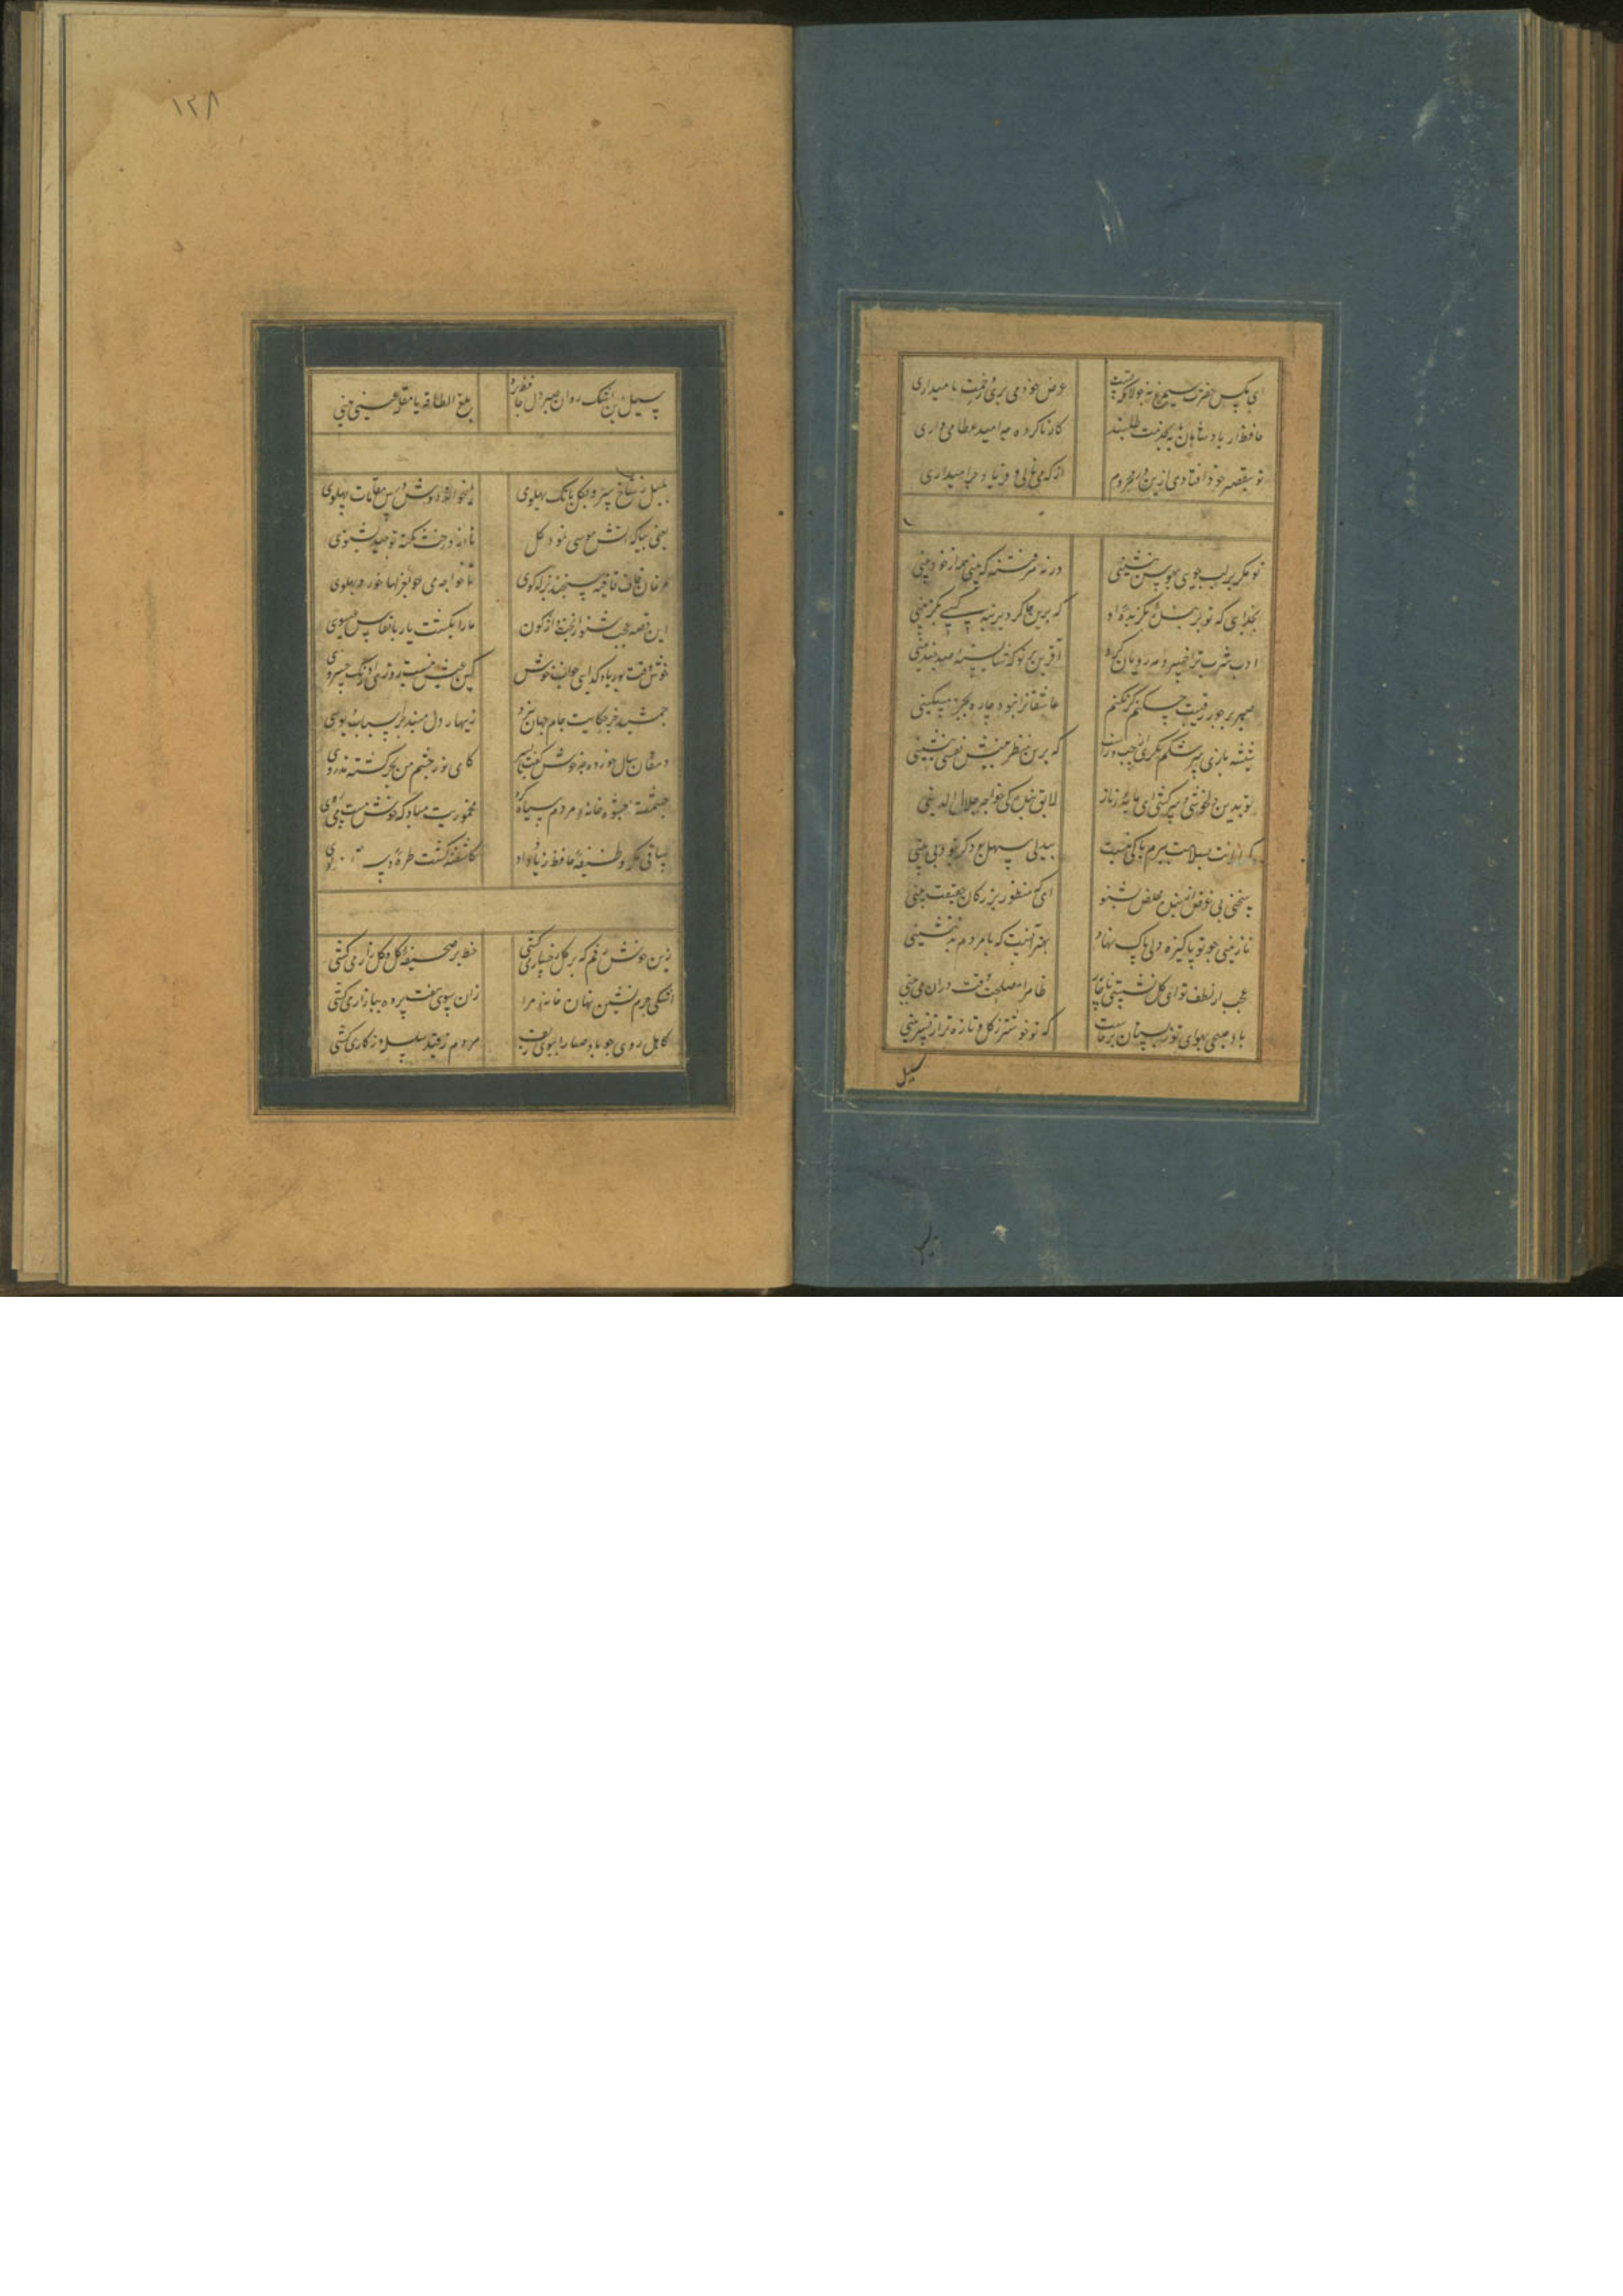 ای مگس حضرت سیمرغ نه جولانگه تست عرض خود می بری و زحمت ما میداری
حافظ از پادشاهان پایه بخدمت طلبند کار ناکرده چه امید عطا می داری
تو بتقصیر خود افتادی ازین در محروم از که می نالی و فریاد چرا میداری
تو مگر بر لب جوی بهوس ننشینی ورنه هر فتنه که بینی همه از خود بینی
بخدایی که تویی بنده بگزیده او که برین چاکر دیرینه کسی نگزینی
ادب و شرم ترا خسرو مه رویان کرد آفرین بر تو که شایسته صد چندینی
صبر بر جور رقیبت چکنم گر نکنم عاشقانرا نبود چاره بجز مسکینی
شیشه بازی سرشکم نگری از چپ و راست که برین منظر بینش نفسی بنشینی
تو بدین دلکشی و سرکشی ای مایه ناز لایق بندگی خواجه جلال الدینی
گر امانت بسلامت ببرم باکی نیست بیدلی سهل بود گر نبود بی دینی
سخنی بی غرض از بنده مخلص بشنو ای که منظور بزرگان حقیقت بینی
نازنینی چو تو پاکیزه دل پاک نهاد بهتر آنست که با مردم بد ننشینی
عجب از لطف تو ای گل که نشستی با خار ظاهرا مصلحت وقت دران می بینی
باد صبحی بهوای تو ز بستان برخاست که تو خوشتر ز گل و تازه تر از نسرینی
سیل
۱۳۸
سیل این اشک روان صبر دل حافظ برد بلغ الطاقه یا مقله عینی بینی
بلبل ز شاخ سرو بگلبانگ پهلوی میخواند دوش درس مقامات پهلوی
یعنی بیا که آتش موسی نمود گل تا از درخت نکته توحید بشنوی
مرغان باغ قافیه سنجند و بذله گوی تا خواجه می خورد بغزلهای پهلوی
این قصه عجب شنو از بخت واژگون ما را بکشت یار بانفاس عیسوی
خوش وقت بوریا و گدایی و خواب خوش کین عیش نیست روزی اورنگ خسروی
جمشید جز حکایت جام از جهان نبرد زنهار دل مبند بر اسباب دنیوی
دهقان سال خورده چه خوش گفت با پسر کای نور چشم من بجز از کشته ندروی
چشمت بعشوه خانه مردم سیاه کرد مخموریت مباد که خوش مست می روی
ساقی مگر وظیفه حافظ زیاده داد کاشفته گشت طره
زین خوش رقم که بر گل رخسار می کشی خط بر صحیفه گل و گلزار می کشی
اشک حرم نشین نهان خانه مرا زان سوی هفت پرده ببازار می کشی
کاهل روی چو باد صبا را ببوی زلف هر دم بقید سلسله در کار می کشی